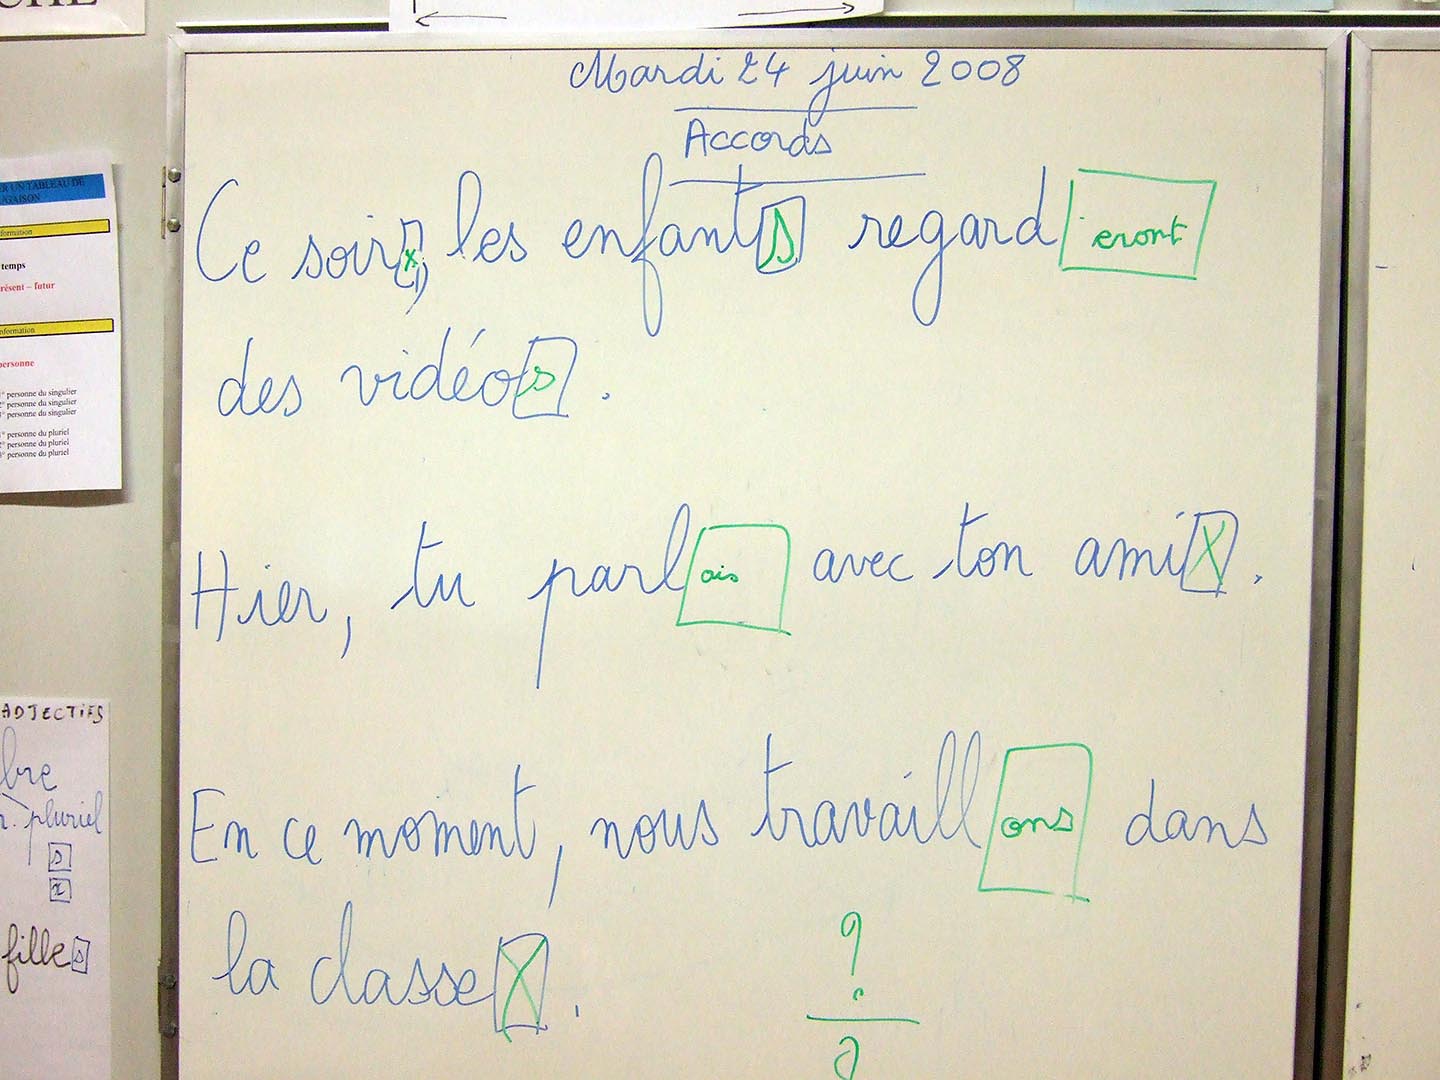 Mardi 24 juin 2008
Accords
Ce soir x, les enfants regarderont
des vidéos.
Hier, tu parlais avec ton ami X.
En ce moment, nous travaillons dans
la classe X.
?
TABLEAU DE
formation
temps
résent – futur
nformation
personne
1° personne du singulier
2° personne du singulier
3° personne du singulier
1° personne du pluriel
2° personne du pluriel
3° personne du pluriel
ADJECTIFS
bre
pluriel
s
x
filles